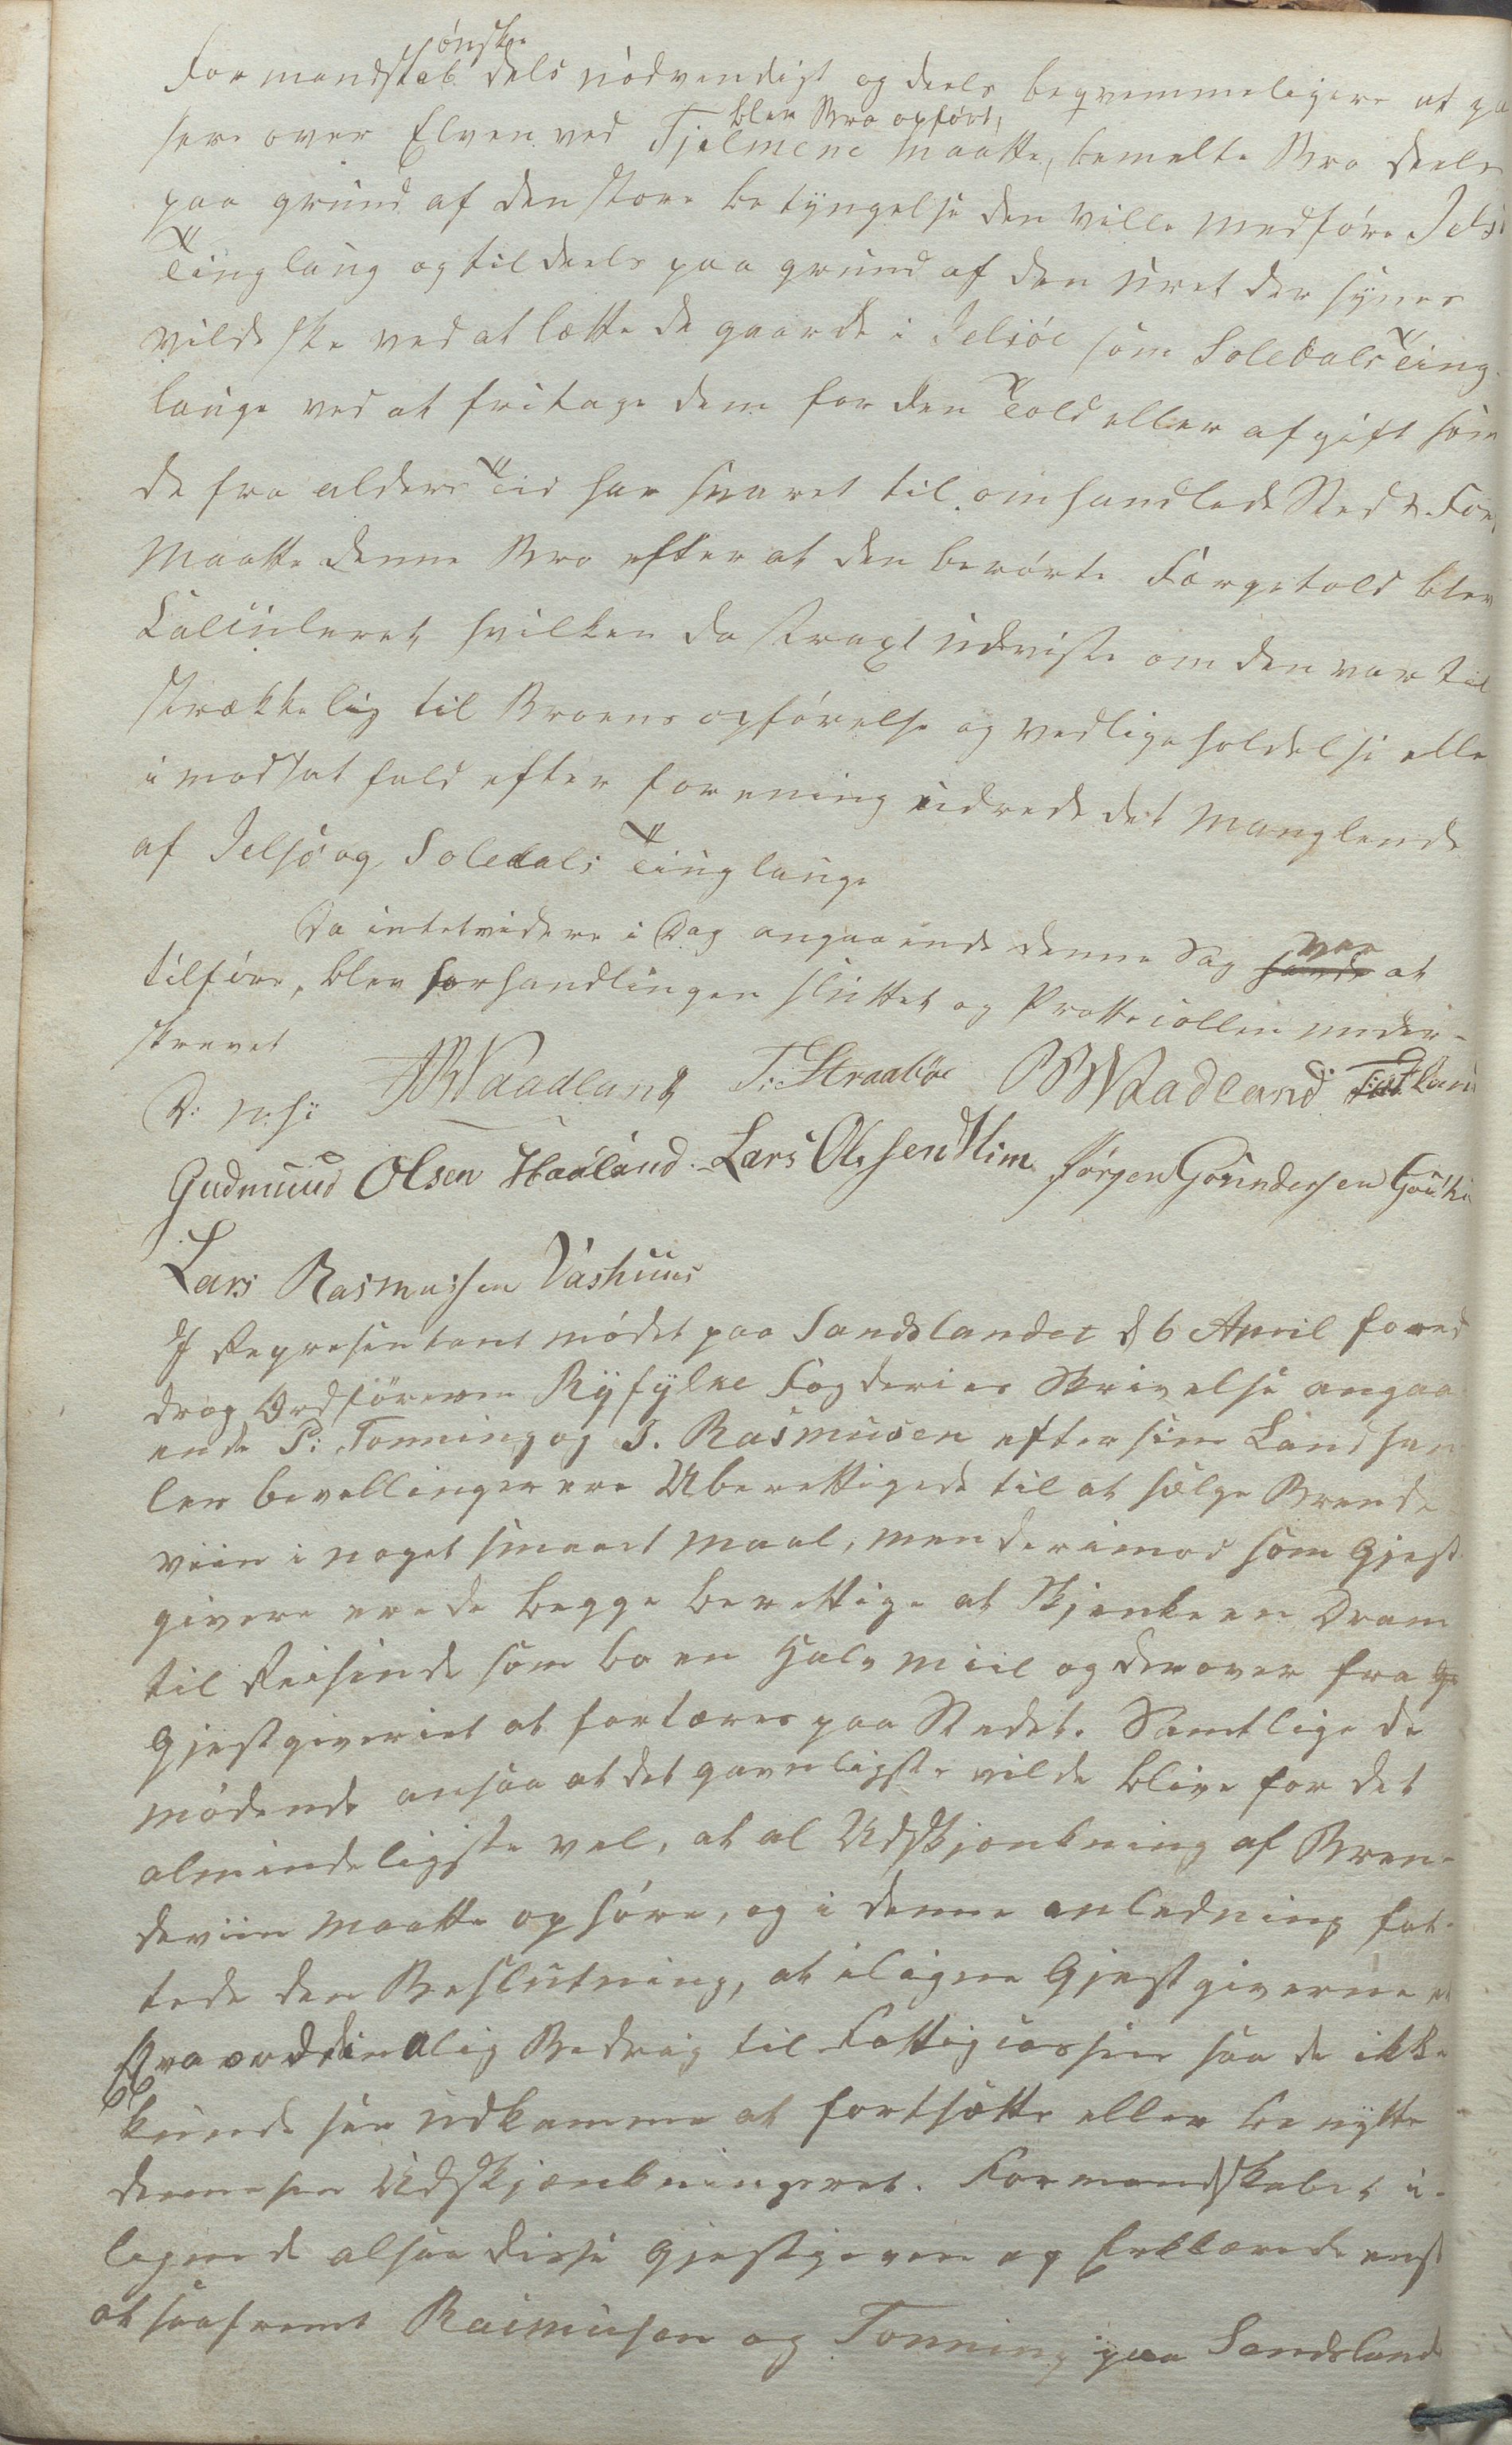 ønske
Formandskab dels nödvendigt og deels beqvemmeligere at pa
sere over Elven ved Tjelmene maatte, bemelte Bro deels
blev Bro opført,
paa grund af den store betyngelse den ville medføre Jelsø
Tinglaug og til deels paa grund af den uret der synes
vilde ske ved at lette de gaarde i Jelsøe som Soledals Ting-
lauge ved at fritage dem for den Told eller afgift som
de fra alders Tid har svaret til omhandlede Sted.
Maatte denne Bro efter at den berørte Færgetold blev
Calculeret, hvilken da straxt udviste om den var til
strækkelig til Broens opførelse og vedligeholdelse elle
i modsat fald efter forening udrede det manglende
af Jelsø og Soledals Tinglauge
Da intet videre i Dag angaaende denne Sag var at
tilføre, blev forhandlingen sluttet og Prottecollen under-
skrevet
ABWaadland T: Straabøe BBWaadland
Gudmund Olsen Haaland. Lars Olssen Him Jørgen Goundersen
Lars Rasmussen Vashuus
I Representant mödet paa Sandslandet d 6 April fored
drog Ordföreren Ryfylke Fogderies Skrivelse angaa
ende P: Tonning og J. Rasmusen efter sine Landhan
ler bevellinger ere Uberettigede til at sælge Brende
viin i noget smaat maal, men derimod som Gjest
givere ere de begge berettige at Skjenke en Dram
til Reisende som bo en Halv miil og derover fra
Gjestgiveriet at fortæres paa Stedet. Samtlige de
mödende ansaa at det gavnligste vilde blive for det
almindeligste vel, at al Udskjenkning af Bren-
deviin maatte ophøre, og i denne anledning fat-
tede den Beslutning, at iligne Gjestgiverne
Bedrag til Fattigcassen saa de ikke
kunde see udkomme at fortsætte eller benytte
denne Udskjenkningsret. Formandskabet i-
lignede alsaa disse Gjestgivere og Erklærede
at saafremt Rasmusen og Tonning paa Sandsland